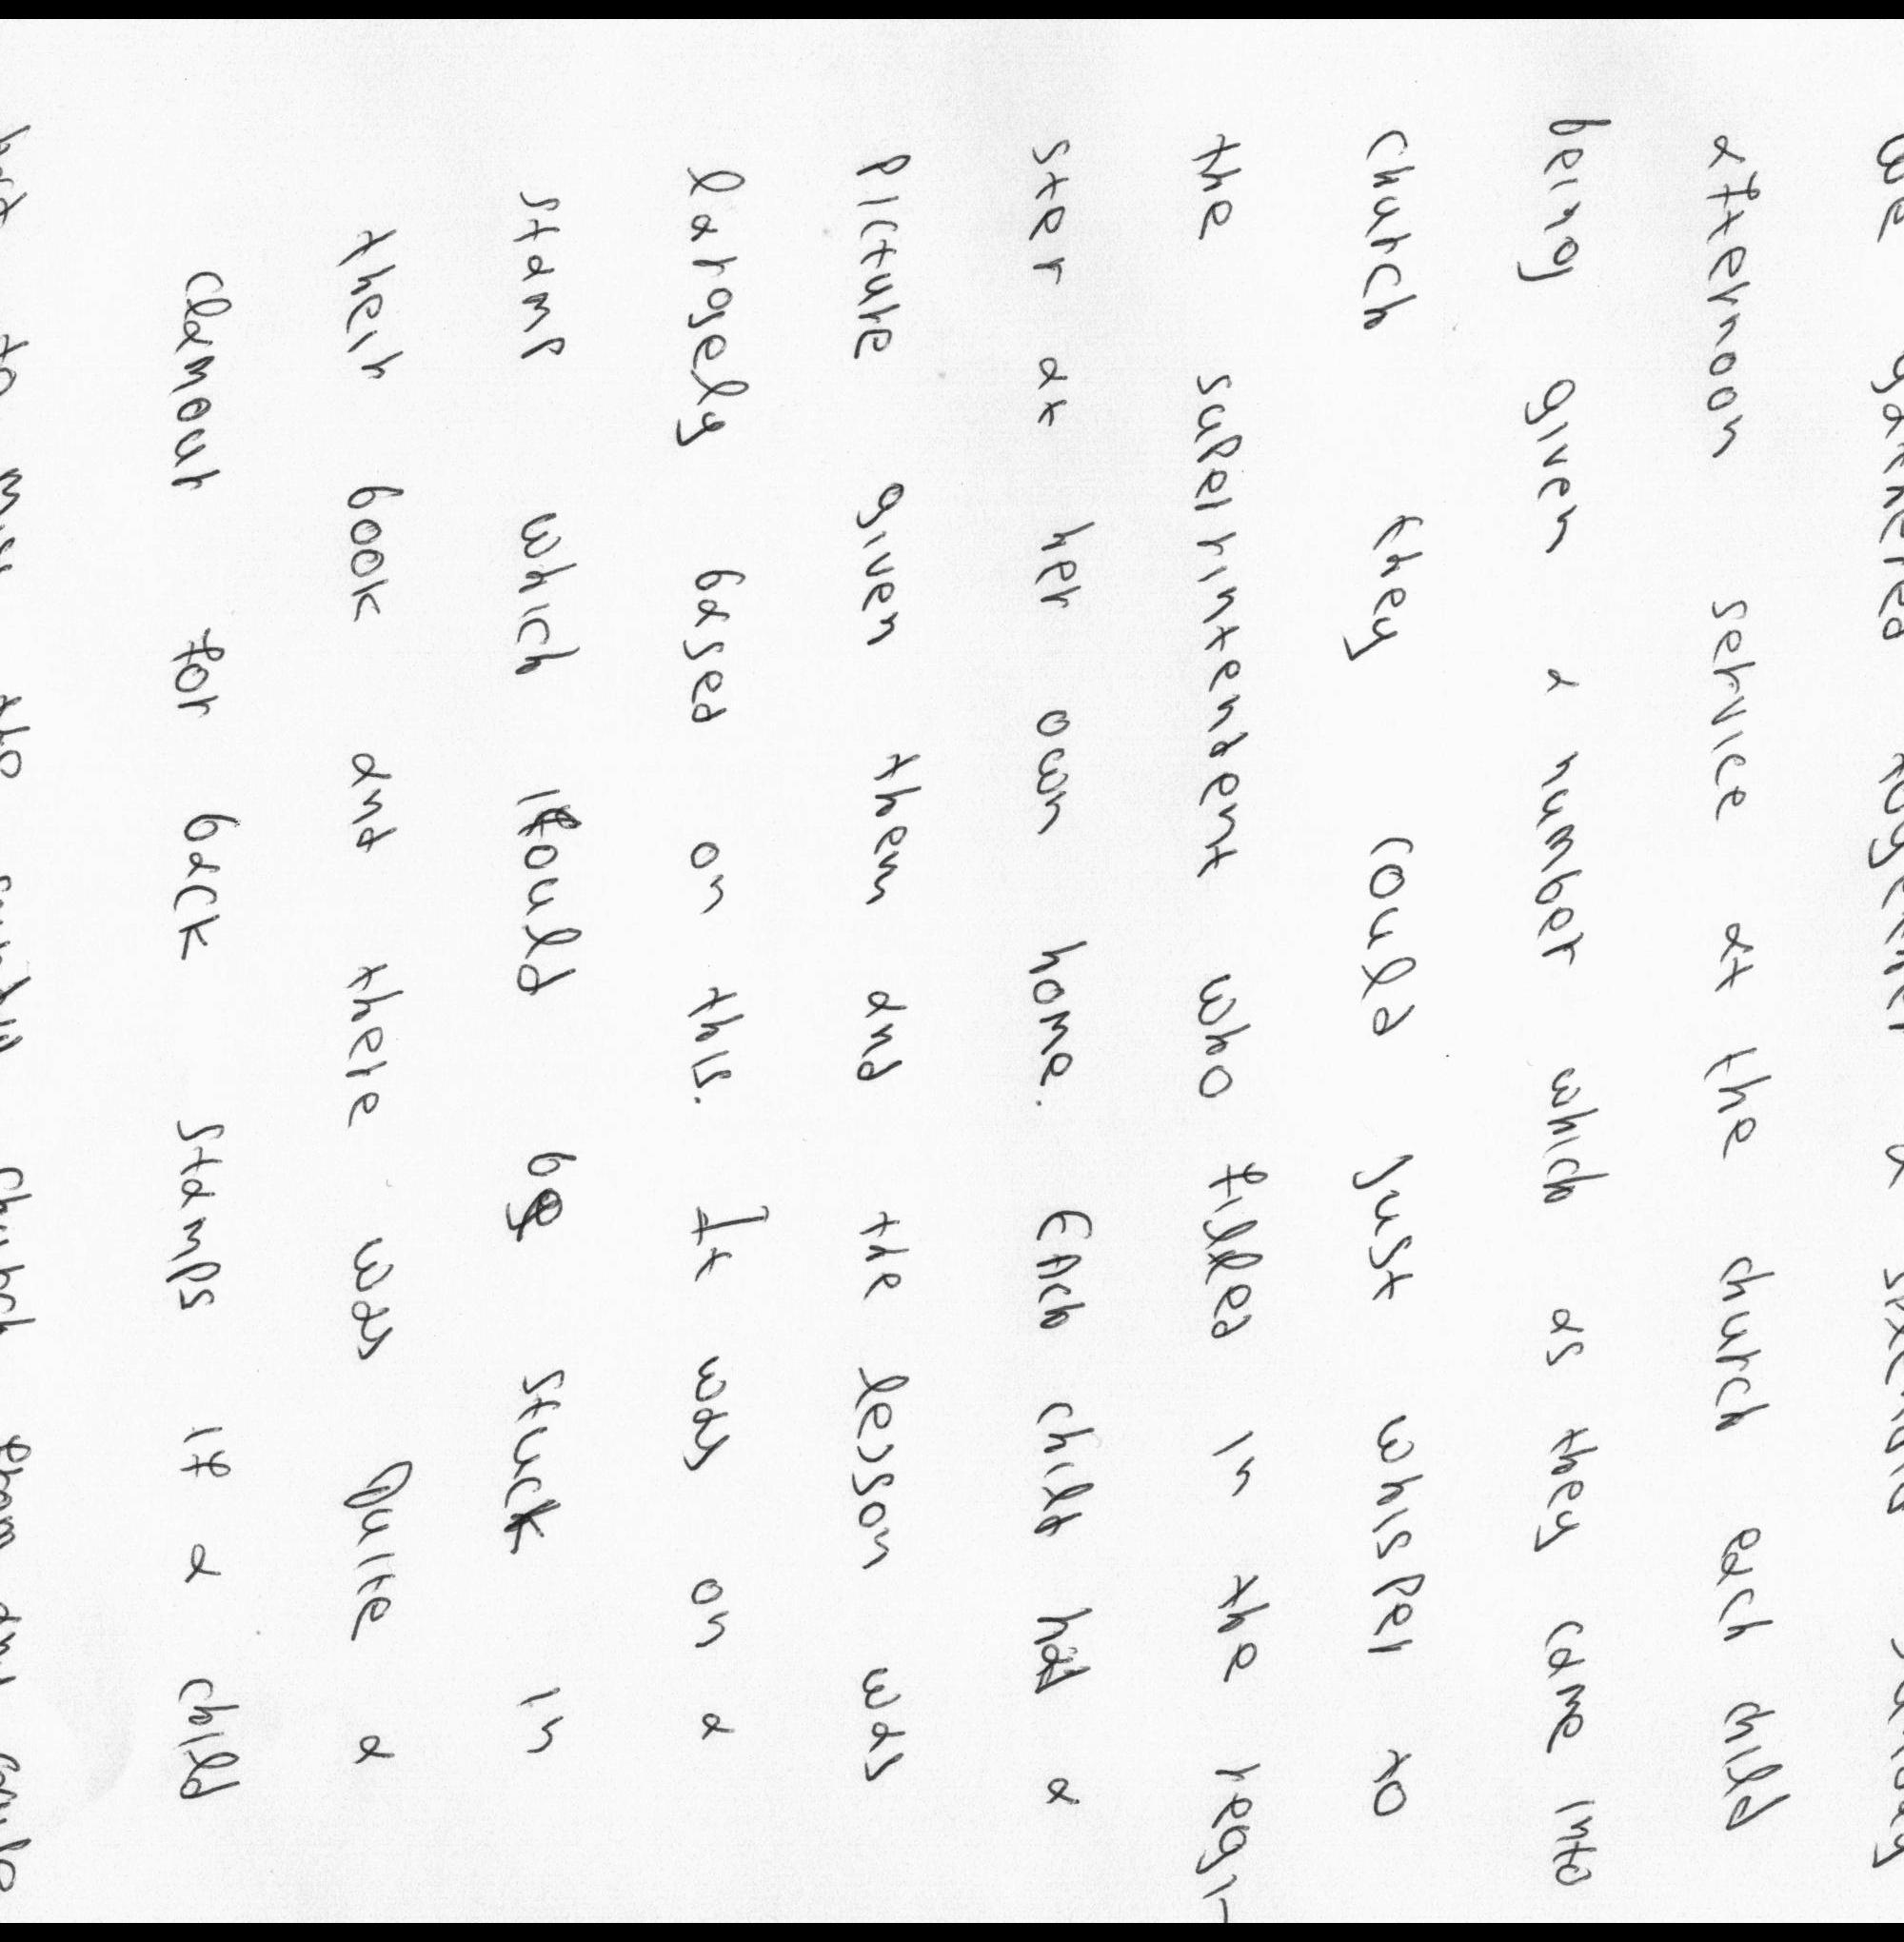 We gathered together a Sunday
afternoon service at the church each child
being given a number which as they came into
church they could just whisper to
the superintendent who filled in the regi-
ster at her own home. EAch child had a
picture given them and the lesson was
largely based on this. It was on a
stamp which would be stuck in
their book and there was quite a
clamour for back stamps if a child
to miss the church from and